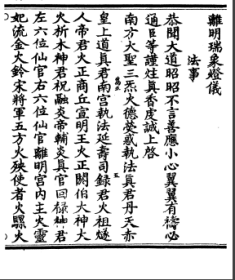 離明瑞彩鐙儀
法事
恭聞大道昭昭不言善應小心翼翼有禱必
通臣等謹炷真香虔誠上啓
南方大聖三炁火德熒惑執法真君丹天赤
皇上道真君南宮執法延壽司錄君火祖燧
人帝君火正商丘宣明王火正閼伯大神大
火析木神君祝融炎帝輔炎真官回祿神君
左六位仙官右六位仙官離明宮內主火靈
妃流金火鈴宋將軍五方火殃使者火騾火